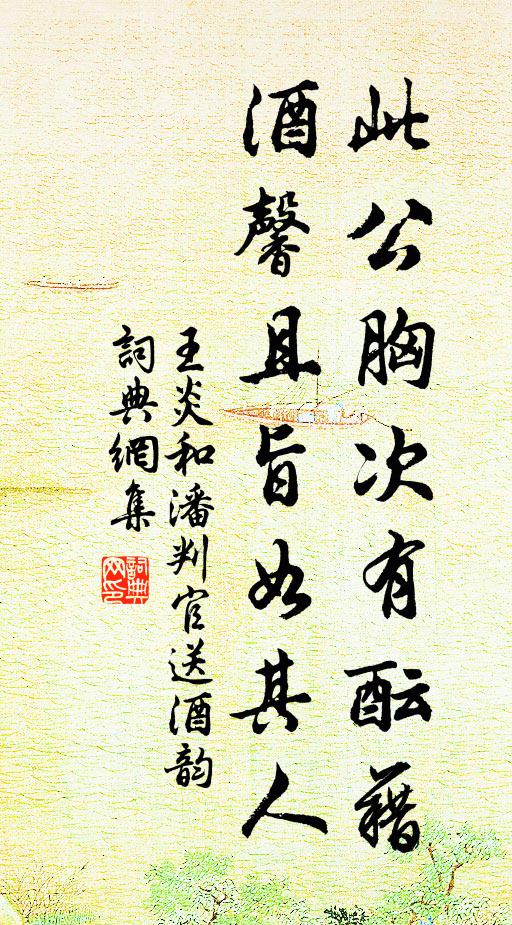 此公胸次有酝藉
酒馨且旨如其人
王炎和潘判官送酒韵
詞典網集
詞典网印